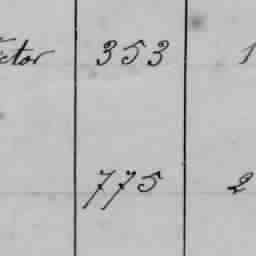 ctor 353 1
775 2